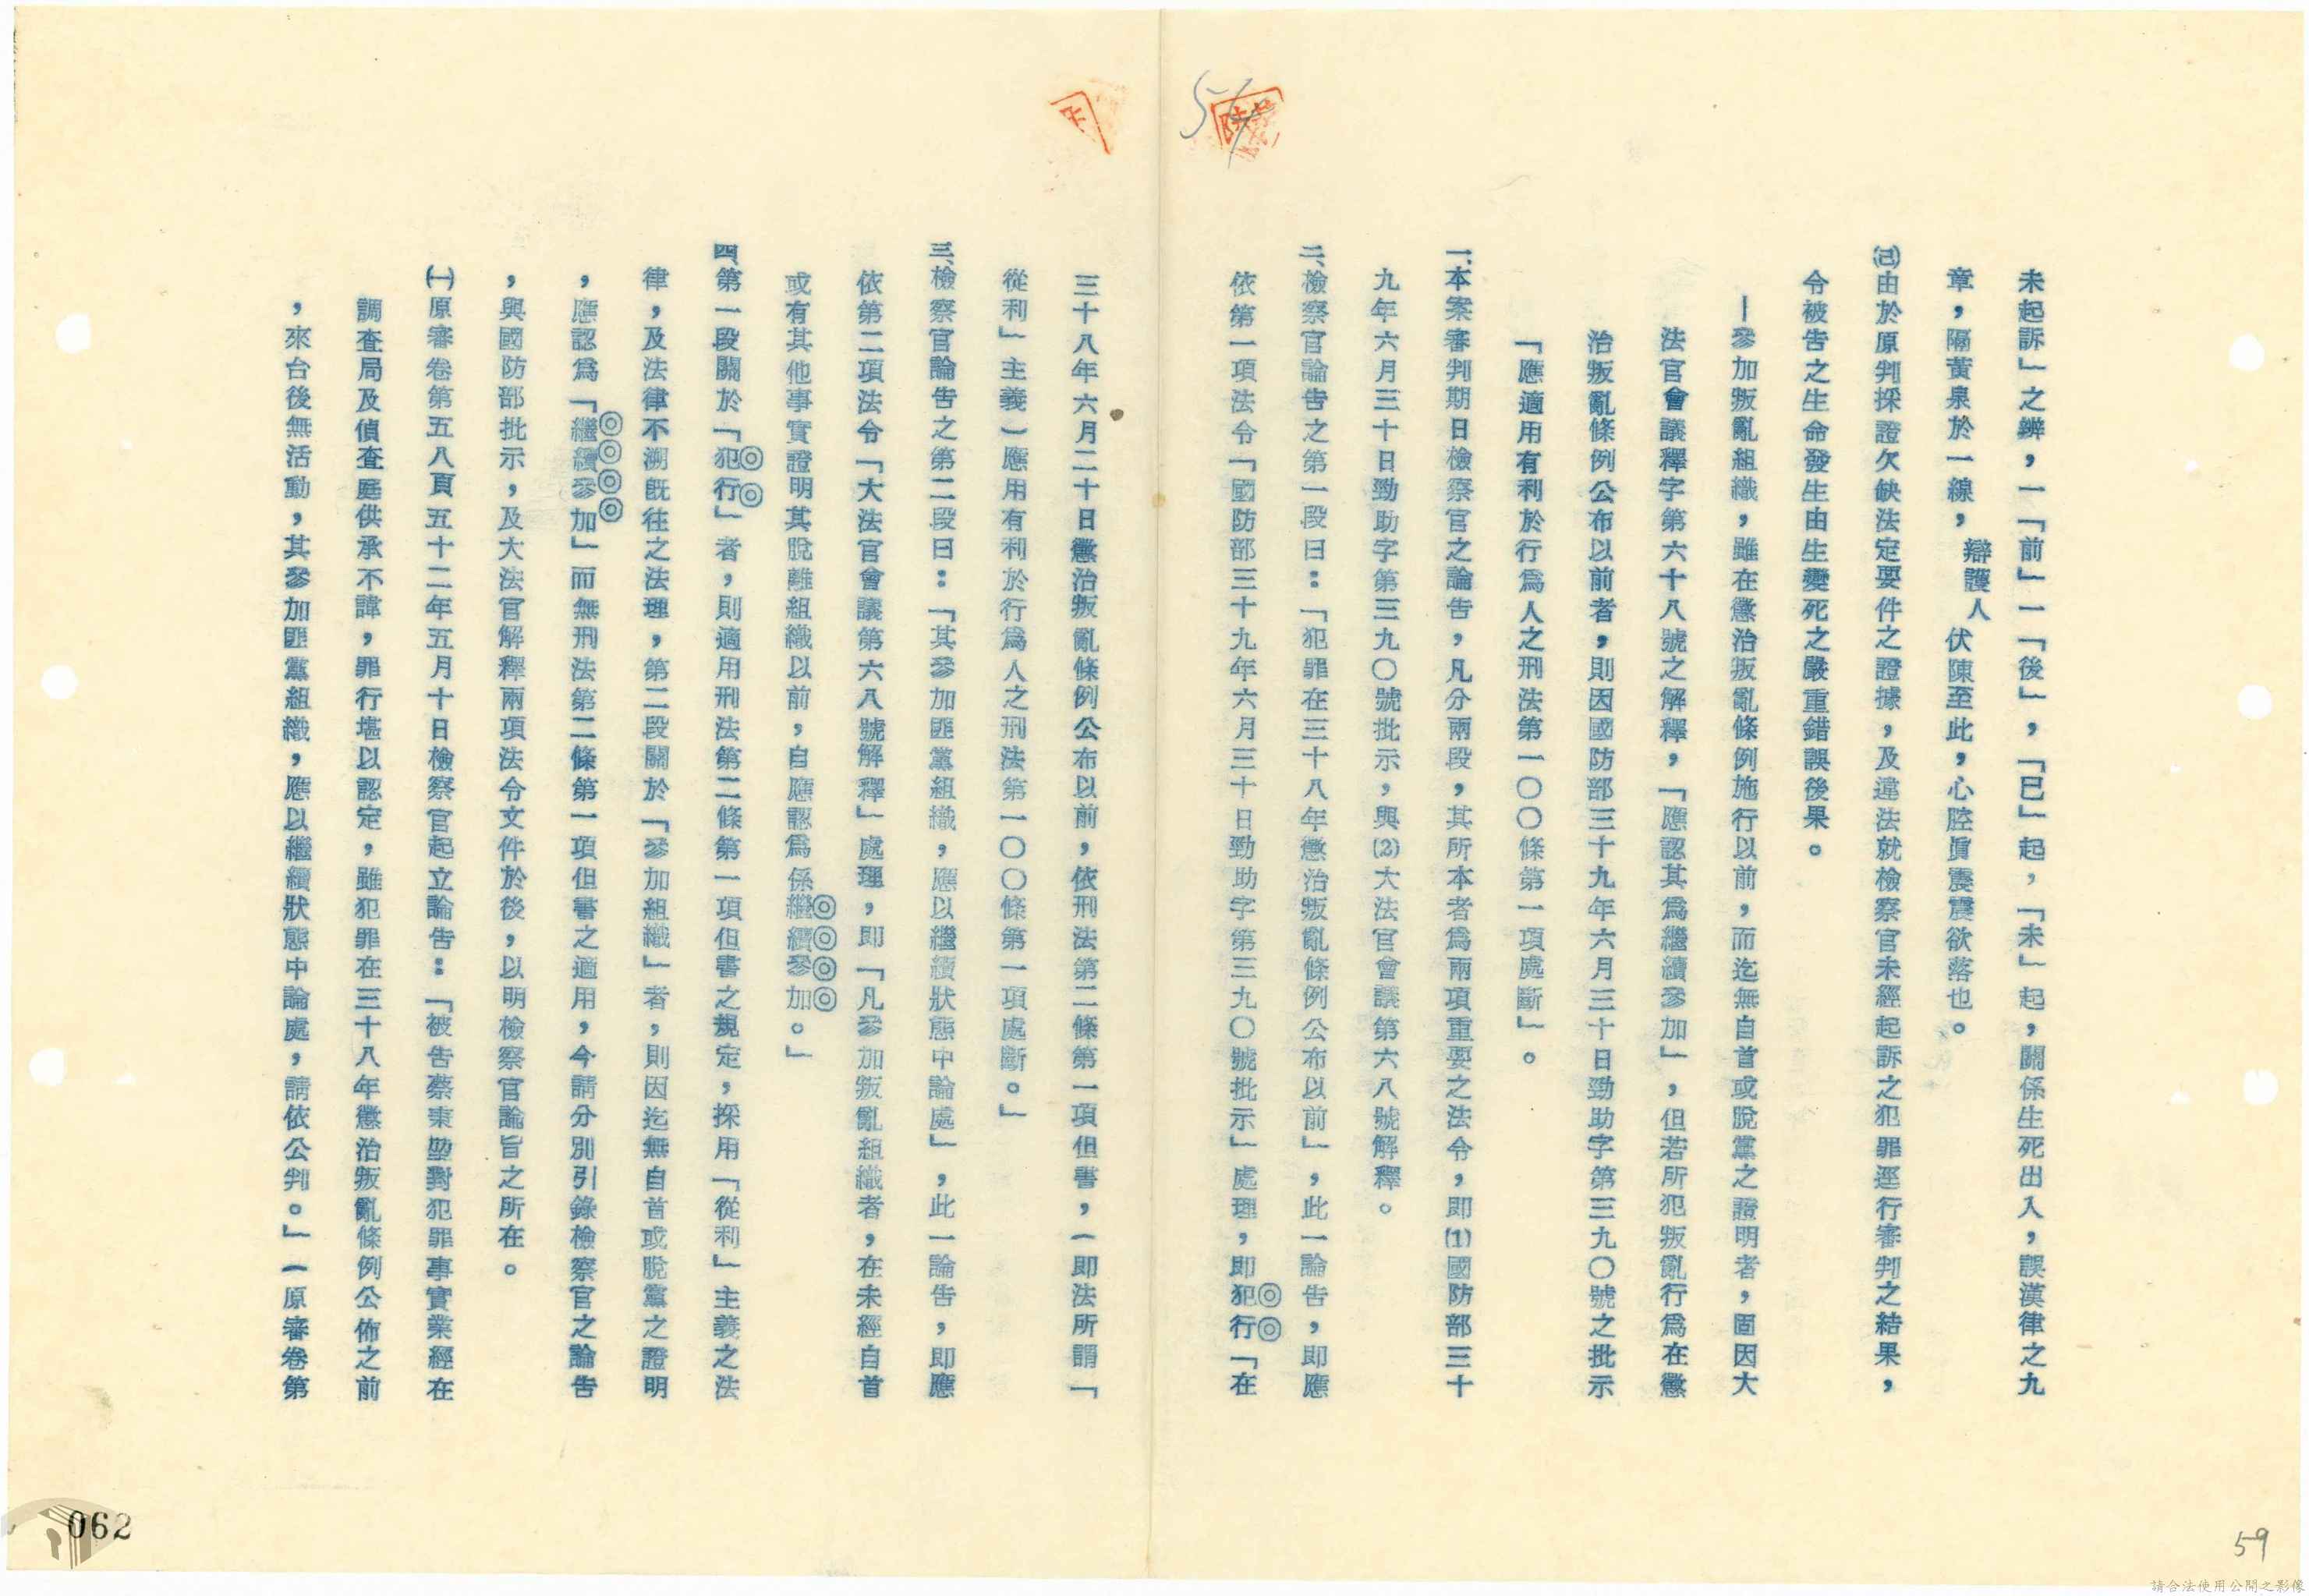 未起訴」之辨，一「前」一「後」，「已」起，「未」起，關係生死出入，誤漢律之九
章，隔黃泉於一線，辯護人伏陳至此，心腔眞震震欲落也。
㈥由於原判採證欠缺法定要件之證據，及違法就檢察官未經起訴之犯罪逕行審判之結果，
令被告之生命發生由生變死之嚴重錯誤後果。
—參加叛亂組織，雖在懲治叛亂條例施行以前，而迄無自首或脫黨之證明者，固因大
法官會議釋字第六十八號之解釋，「應認其爲繼續參加」，但若所犯叛亂行爲在懲
治叛亂條例公布以前者，則因國防部三十九年六月三十日勁助字第三九〇號之批示
「應適用有利於行爲人之刑法第一〇〇條第一項處斷」。
一、本案審判期日檢察官之論告，凡分兩段，其所本者爲兩項重要之法令，即⑴國防部三十
九年六月三十日勁助字第三九〇號批示，與⑵大法官會議第六八號解釋。
二、檢察官論告之第一段曰：「犯罪在三十八年懲治叛亂條例公布以前」，此一論告，即應
依第一項法令「國防部三十九年六月三十日勁助字第三九〇號批示」處理，即犯行「在
三十八年六月二十日懲治叛亂條例公布以前，依刑法第二條第一項但書，（即法所謂「
從利」主義）應用有利於行爲人之刑法第一〇〇條第一項處斷。」
三、檢察官論告之第二段曰：「其參加匪黨組織，應以繼續狀態中論處」，此一論告，即應
依第二項法令「大法官會議第六八號解釋」處理，即「凡參加叛亂組織者，在未經自首
或有其他事實證明其脫離組織以前，自應認爲係繼續參加。」
四、第一段關於「犯行」者，則適用刑法第二條第一項但書之規定，採用「從利」主義之法
律，及法律不溯既往之法理，第二段關於「參加組織」者，則因迄無自首或脫黨之證明
，應認爲「繼續參加」而無刑法第二條第一項但書之適用，今請分別引錄檢察官之論告
，與國防部批示，及大法官解釋兩項法令文件於後，以明檢察官論旨之所在。
㈠原審卷第五八頁五十二年五月十日檢察官起立論告：「被告蔡東堃對犯罪事實業經在
調查局及偵查庭供承不諱，罪行堪以認定，雖犯罪在三十八年懲治叛亂條例公佈之前
，來台後無活動，其參加匪黨組織，應以繼續狀態中論處，請依公判。」（原審卷第
51
062
59
請合法使用公開之影像